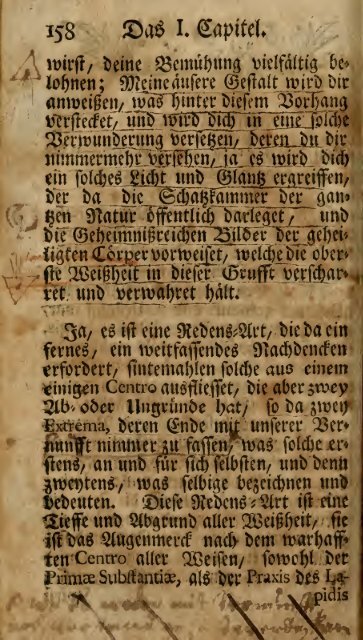 158 Das I. Capitel.
wirst, deine Bemühung vielfältig be-
lohnen; Meine äusere Gestalt wird dir
anweißen, was hinter diesem Vorhang
verstecket, und wird dich in eine solche
Verwunderung versetzen, deren du dir
nimmermehr versehen, ja es wird dich
ein solches Licht und Glantz ergreiffen,
der da die Schatzkammer der gan-
tzen Natur öffentlich darleget, und
die Geheimnißreichen Bilder der gehei-
ligten Cörper vorweiset, welche die ober-
ste Weißheit in dieser Grufft verschar-
ret und verwahret hält.
Ja, es ist eine Redens-Art, die da ein
fernes, ein weitfassendes Nachdencken
erfordert, sintemahlen solche aus einem
einigen Centro ausfliesset, die aber zwey
Ab- oder Ungründe hat, so da zwey
Extrema, deren Ende mit unserer Ver-
nunfft nimmer zu fassen, was solche er-
stens, an und für sich selbsten, und denn
zweytens, was selbige bezeichnen und
bedeuten. Diese Redens-Art ist eine
Tieffe und Abgrund aller Weißheit, sie
ist das Augenmerck nach dem warhaff-
ten Centro aller Weisen, sowohl der
Primæ Substantiæ, als der Praxis des La-
pidis